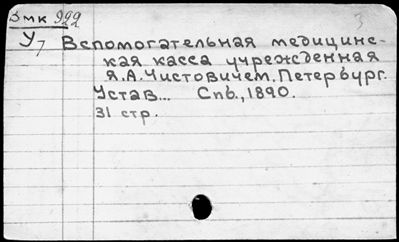 Змк 922
У7 Вспомогательная медицинс-
кая касса учрежденная
Я.А.Чистовичем.Петербург.
Устав... Спб.,1890.
31 стр.